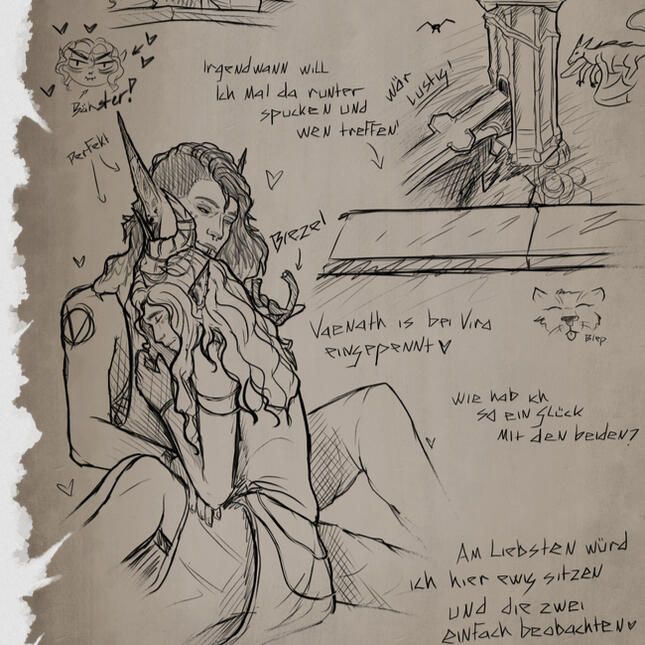 Irgendwann will
ich mal da runter
spucken und
wen treffen!
wär
lustig!
Bänster!
Perfekt
Brezel
Vaenath is bei Vira
eingepennt
Blep
Wie hab ich
so ein Glück
mit den beiden?
Am Liebsten würd
ich hier ewig sitzen
und die zwei
einfach beobachten